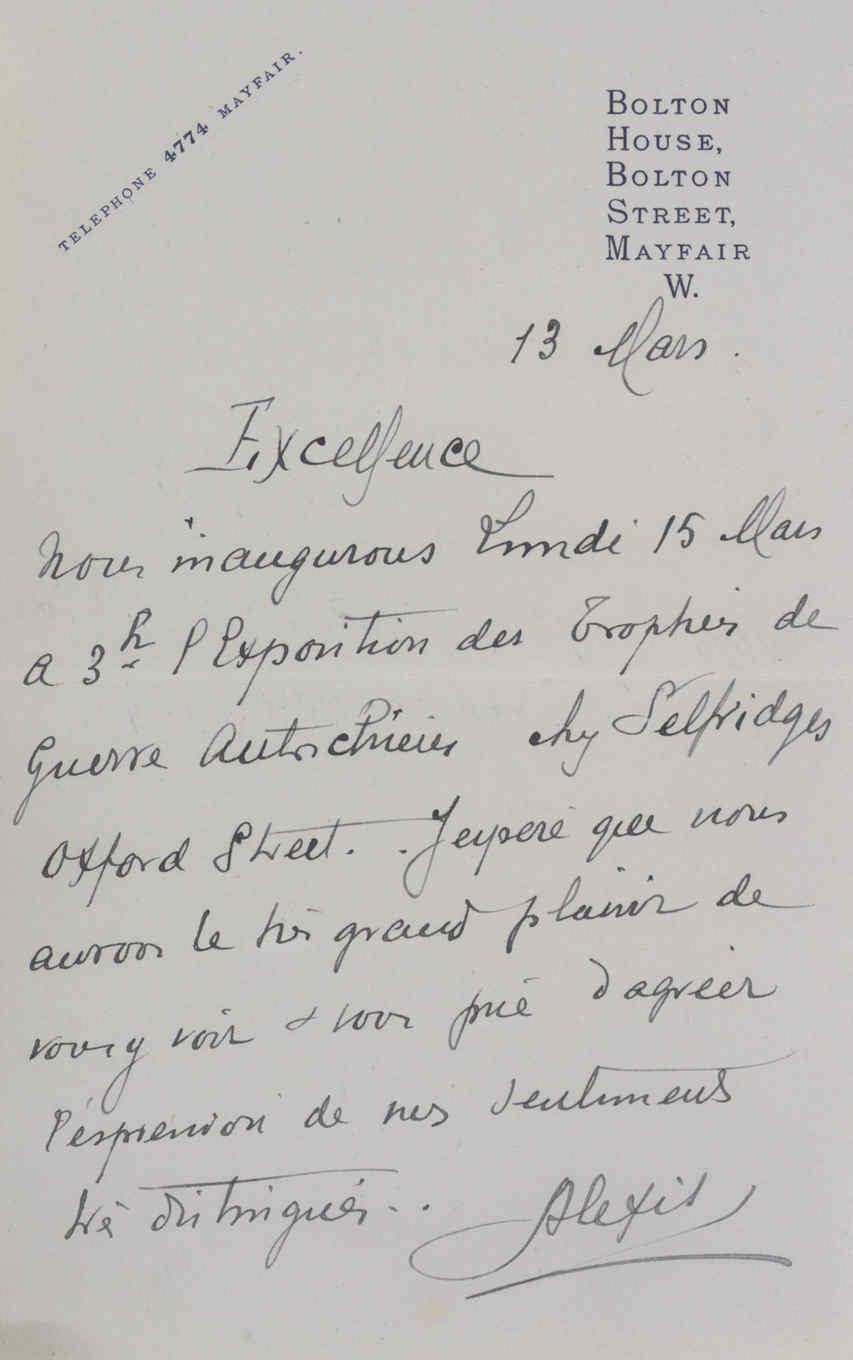 TELEPHONE 4774 MAYFAIR.
BOLTON
HOUSE,
BOLTON
STREET,
MAYFAIR
W.
13 Mars.
Excellence
Nous inaugurons Lundi 15 Mars
a 3h l'Exposition des Trophées de
Guerre Autrichiens chez Selfridges
Oxford Street. . J'espère que nous
aurons le très grand plaisir de
vous y voir & vous prie d'agréer
l'expression de mes sentiments
très distingués. .
Alexis